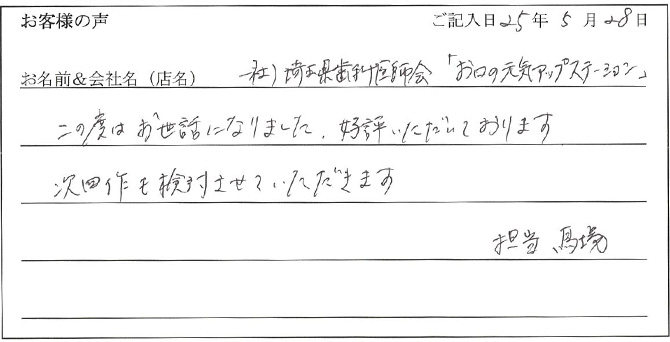 お客様の声 ご記入日25年5月28日
お名前&会社名(店名) 一社)埼玉県歯科医師会「お口の元気アップステーション」
この度はお世話になりました。好評いただいております
次回作も検討させていただきます
担当 馬場